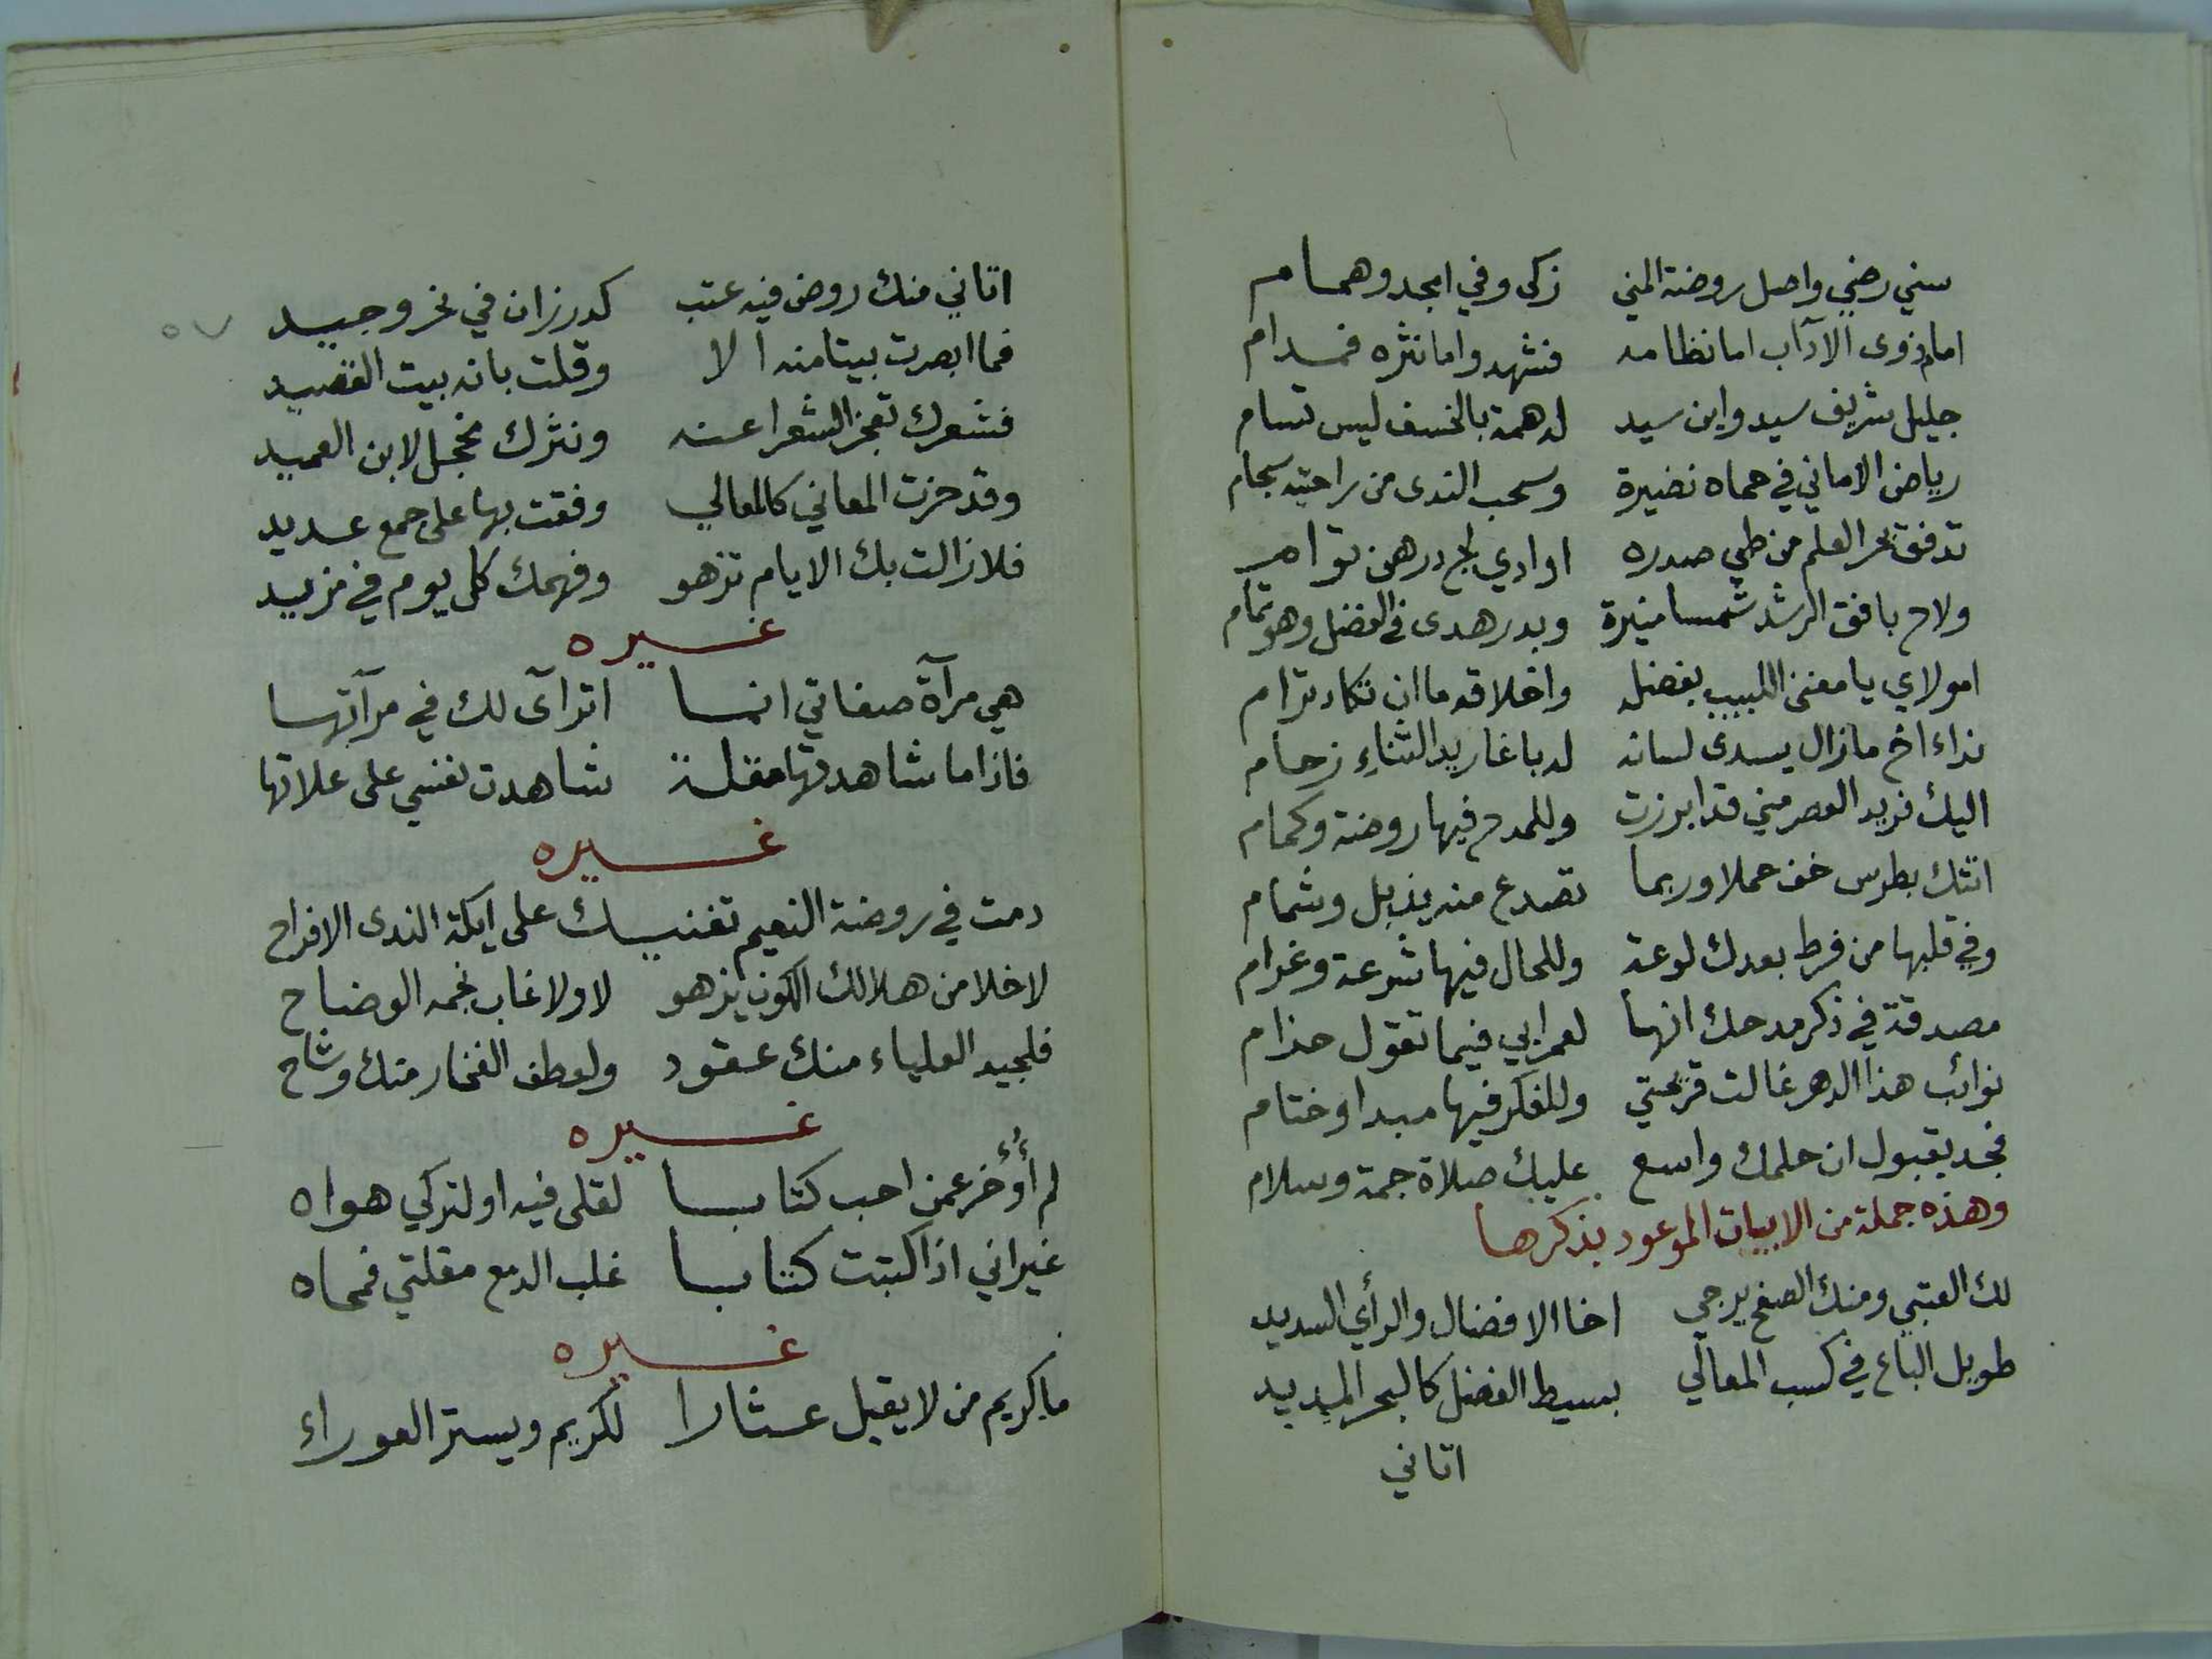 سني رضي واصل روضة المني زكى وفي امجد وهمام
امام ذوى الآداب اما نظامه فشهد واما نثره فمدام
جليل شريف سيد وابن سيد له همة بالخسف ليس تسام
رياض الاماني في حماه نضيرة وسحب الندى من راحتيه سجام
تدفق بحر العلم من طي صدره اوادي لج درهن توام
ولاح بافق الرشد شمسا منيرة وبدر هدى في الفضل وهو تمام
امولاي يا مغنى اللبيب بفضله واخلاقه ما ان تكاد ترام
نداء اخ مازال يسدى لسانه له باغاريد الثناء زحام
اليك فريد العصر مني قد ابرزت وللمدح فيها روضة وكمام
اتتك بطرس خف حملا وربما تصدع منه يذبل وشمام
وفي قلبها من فرط بعدك لوعة وللحال فيها شرعة وغرام
مصدقة في ذكر مدحك انها لعمرابي فيما تقول حذام
نوائب هذا الدهر غالت قريحتي وللفكر فيها مبدا وختام
فجد بقبول ان حلمك واسع عليك صلاة جمة وسلام
وهذه جملة من الابيات الموعود بذكرها
لك العتبي ومنك الصفح يرجي اخا الافضال والرأي السديد
طويل الباع في كسب المعالي بسيط الفضل كالبحر المديد
اتاني
اتاني منك روض فيه عتب كدر زان في نحر وجيد
فما ابصرت بيتا منه الا وقلت بانه بيت القصيد
فشعرك تعجز الشعرا عنه ونثرك مخجل لابن العميد
وقد حزت المعاني كالمعالي وفقت بها على جمع عديد
فلا زالت بك الايام تزهو وفهمك كل يوم في مزيد
غيره
هي مرآة صفاتي انما اترآى لك في مرآتها
فاذا ما شاهدتها مقلة شاهدت نفسي على علاتها
غيره
دمت في روضة النعيم تغنيك على ايكة الندى الافراح
لا خلا من هلالك الكون يزهو لا ولا غاب نجمه الوضاح
فلجيد العلياء منك عقود ولعطف الفخار منك وشاح
غيره
لم أُؤخر عمن احب كتابا لقلى فيه او لتركي هواه
غير اني اذا كتبت كتابا غلب الدمع مقلتي فمحاه
غيره
ما كريم من لا يقيل عثارا لكريم ويستر العوراء
٥٧